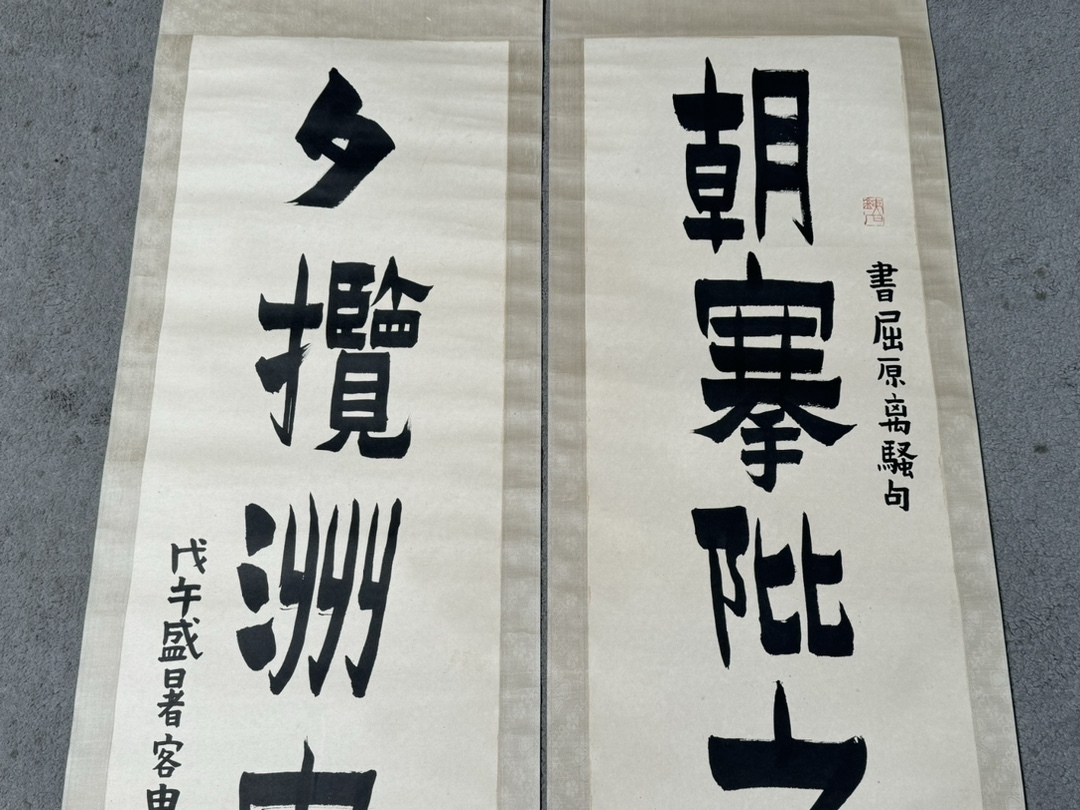 書屈原离騷句
朝搴阰之
夕攬洲
戊午盛暑客